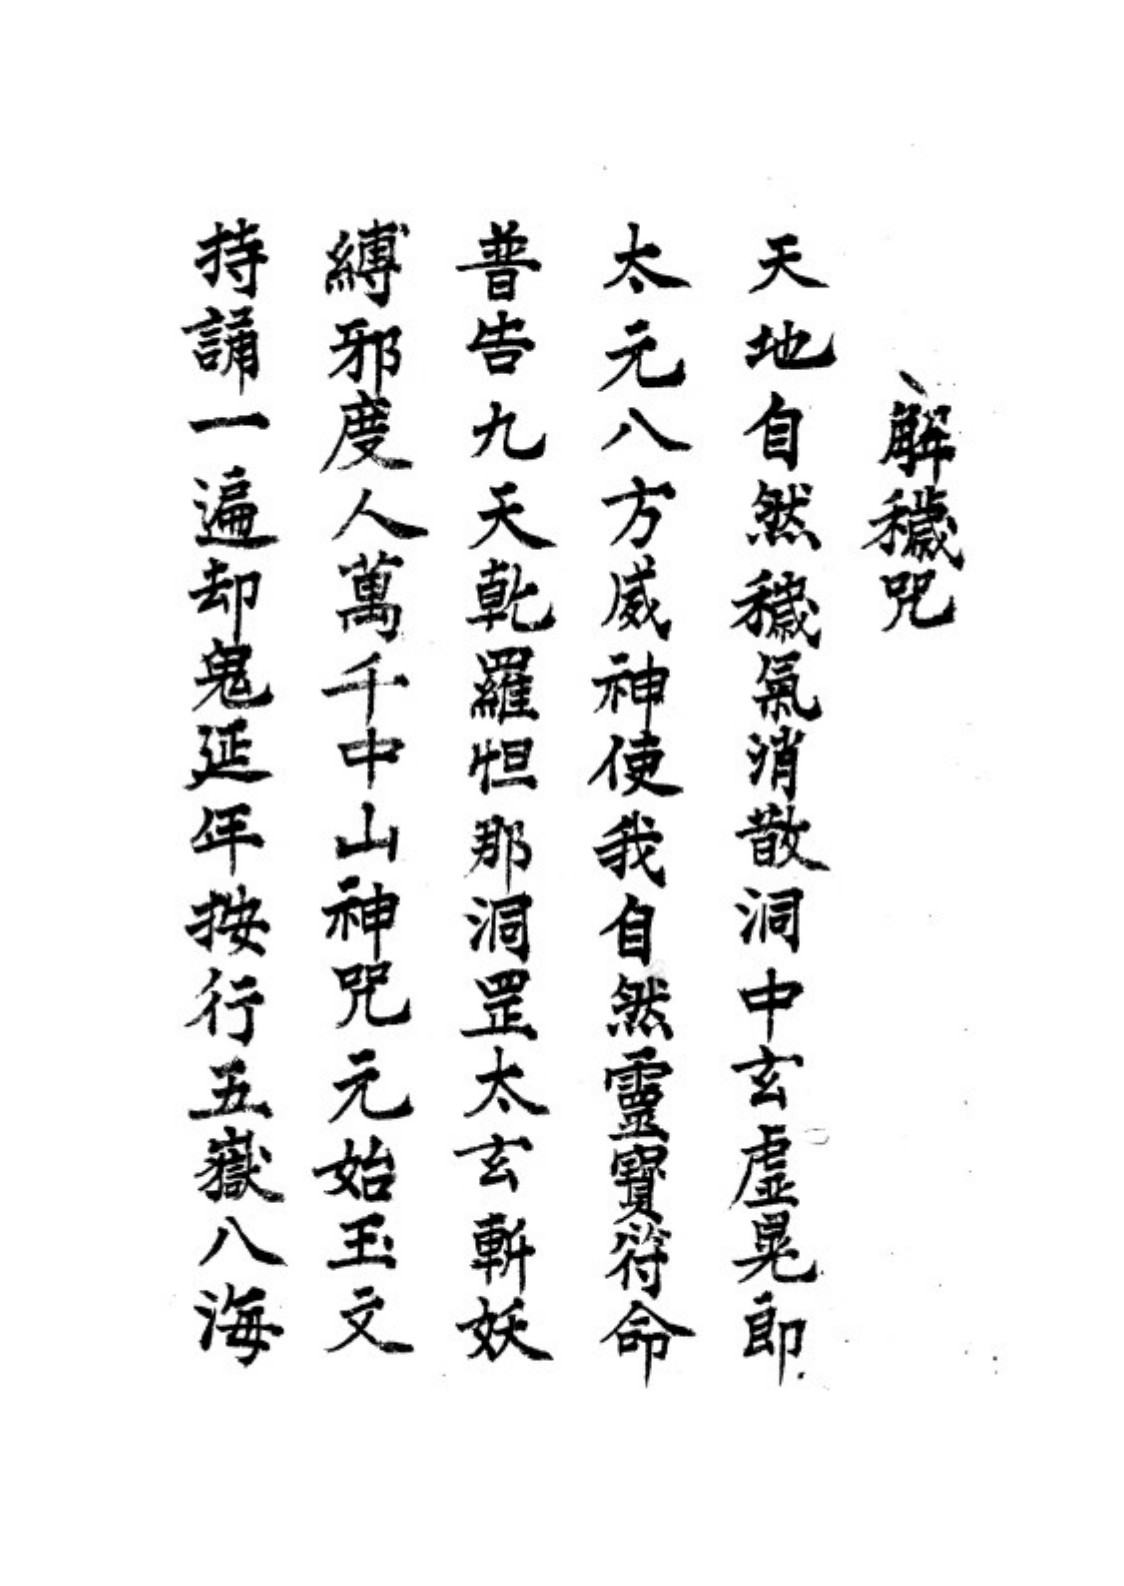 解穢咒
天地自然穢氣消散洞中玄虛晃郎
太元八方威神使我自然靈寶符命
普告九天乾羅怛那洞罡太玄斬妖
縛邪度人萬千中山神咒元始玉文
持誦一遍却鬼延年按行五嶽八海